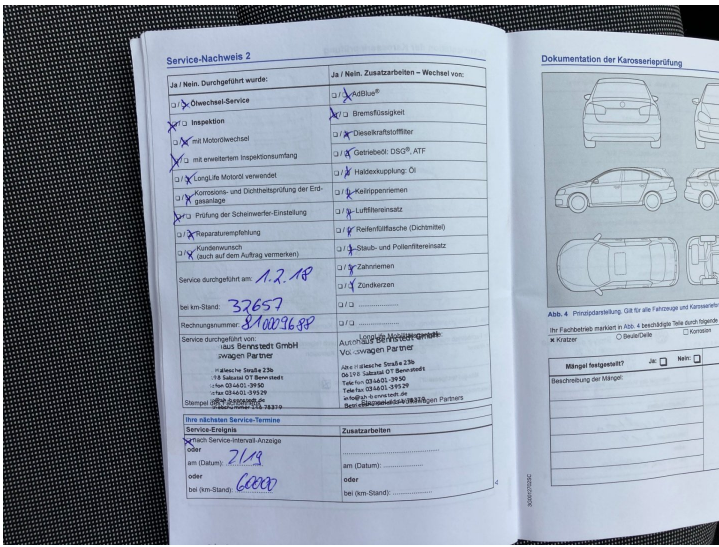 Service-Nachweis 2
Ja / Nein. Durchgeführt wurde:
Ja / Nein. Zusatzarbeiten – Wechsel von:
Ölwechsel-Service
AdBlue®
Inspektion
Bremsflüssigkeit
mit Motorölwechsel
Dieselkraftstofffilter
mit erweitertem Inspektionsumfang
Getriebeöl: DSG®, ATF
LongLife Motoröl verwendet
Haldexkupplung: Öl
Korrosions- und Dichtheitsprüfung der Erd-
gasanlage
Keilrippenriemen
Prüfung der Scheinwerfer-Einstellung
Luftfiltereinsatz
Reparaturempfehlung
Reifenfüllflasche (Dichtmittel)
Kundenwunsch
(auch auf dem Auftrag vermerken)
Staub- und Pollenfiltereinsatz
Service durchgeführt am: 1.2.18
Zahnriemen
Zündkerzen
bei km-Stand: 32657
Rechnungsnummer: 810009688
Service durchgeführt von:
aus Bennstedt GmbH
swagen Partner
Hallesche Straße 23b
198 Salzatal OT Bennstedt
fon 034601-3950
fax 034601-39529
Stempel des
Autohaus Bennstedt GmbH
Volkswagen Partner
Alte Hallesche Straße 23b
06198 Salzatal OT Bennstedt
Telefon 034601-3950
Telefax 034601-39529
info@ah-bennstedt.de
Ihre nächsten Service-Termine
Service-Ereignis
Zusatzarbeiten
nach Service-Intervall-Anzeige
oder
am (Datum): 2/19
am (Datum):
oder
oder
bei (km-Stand): 60000
bei (km-Stand):
Dokumentation der Karosserieprüfung
Abb. 4 Prinzipdarstellung. Gilt für alle Fahrzeuge und
Ihr Fachbetrieb markiert in Abb. 4 beschädigte Teile durch folgende
x Kratzer
O Beule/Delle
Korrosion
Mängel festgestellt?
Ja:
Nein:
Beschreibung der Mängel: